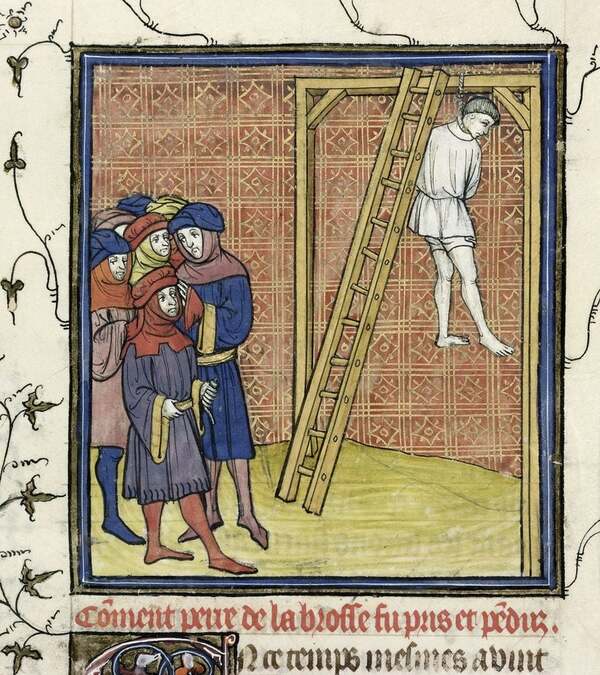 Cõment peire de la brosse fu pris et pẽduz.
En ce temps meismes avint